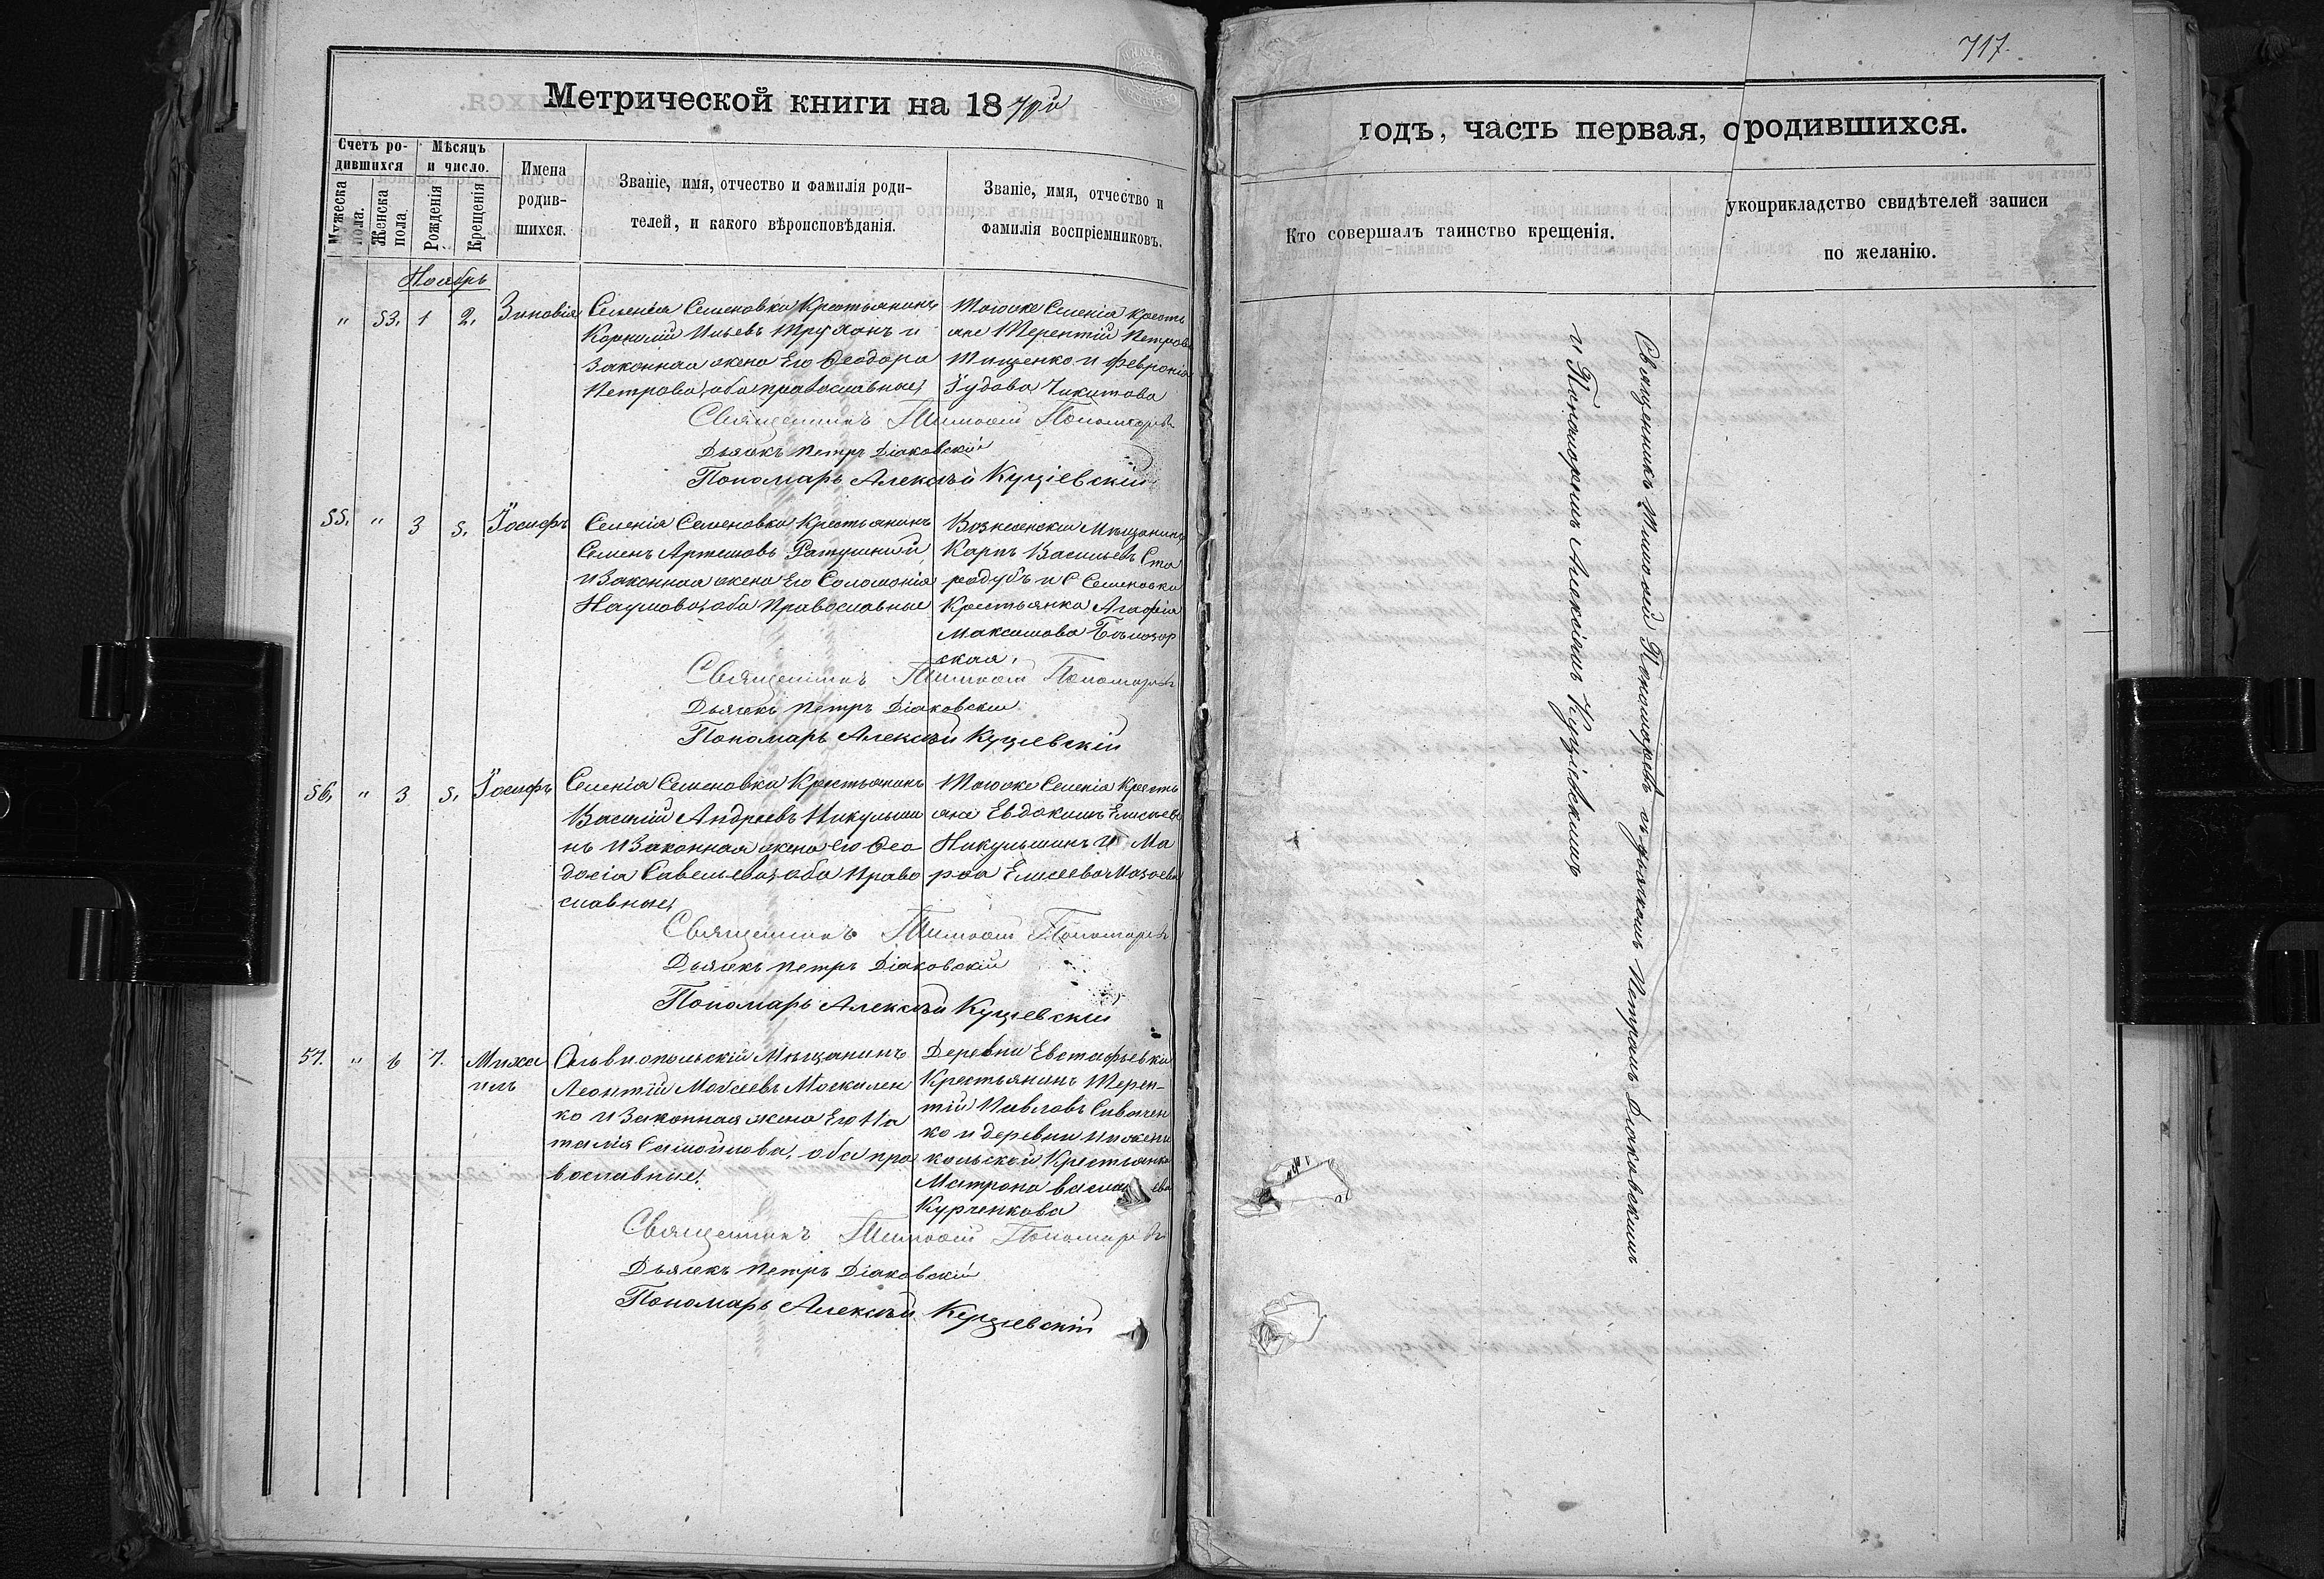 717.
Метрической книги на 1870й
годъ, часть первая, о родившихся.
Счетъ ро-
дившихся
Мѣсяцъ
и число.
Мужеска
пола.
Женска
пола.
Рожденія
Крещенія
Имена
родив-
шихся.
Званіе, имя, отчество и фамилія роди-
телей, и какого вѣроисповѣданія.
Званіе, имя, отчество и
фамилія воспріемниковъ.
Кто совершалъ таинство крещенія.
укоприкладство свидѣтелей записи
по желанію.
Ноябрь
" 53, 1 2, Зиновія
Селенія Семеновки Крестьянинъ
Корнилій Ильевъ Труханъ и
Законная жена Его Ѳеодора
Петрова, оба православные,
Тогоже Селенія Кресть
яне Терентій Петровъ
Тищенко и Февронія
Никитова
Священникъ Тимоѳей Пономаревъ
Дьячекъ Петръ Діаковскій
Пономарь Алексѣй Куціевскій
55, " 3 5, Іосифъ
Селенія Семеновки Крестьянинъ
Семенъ Артемовъ Ратушный
и Законная жена Его Соломонія
Наумова, оба Православные
Вознесенскій Мѣщанинъ
Карпъ Васильевъ Ста
родубъ и С Семеновки
Крестьянка Агафія
Максимова Бѣлозор
ская,
Священникъ Тимоѳей Пономаревъ
Дьячекъ Петръ Діаковскій
Пономарь Алексѣй Куціевскій
56, " 3 5, Іосифъ
Селенія Семеновки Крестьянинъ
Василій Андреевъ Никульши
нъ и Законная жена его Ѳео
досія Савельева, оба Право
славные,
Тогоже Селенія Кресть
яне Евдокимъ Елисеевъ
Никульшинъ и Ма
рѳа Елисеева
Священникъ Тимоѳей Пономаревъ
Дьячекъ Петръ Діаковскій
Пономарь Алексѣй Куціевскій
57. " 6 7. Миха
илъ
Ольвіопольскій Мѣщанинъ
Леонтій Моѵсеевъ Москален
ко и Законная жена Его На
талія Самойлова, оба пра
вославные.
Деревни Евстафьевки
Крестьянинъ Терен-
тій Павловъ Сиваченко
и деревни
кольской Крестьянка
Матрона Васильева
Курченкова
Священникъ Тимоѳей Пономаревъ
Дьячекъ Петръ Діаковскій
Пономарь Алексѣй Куціевскій
Священникъ Тимоѳей Пономаревъ съ дьячкомъ Петромъ Діаковскимъ
и Пономаремъ Алексѣемъ Куціевскимъ